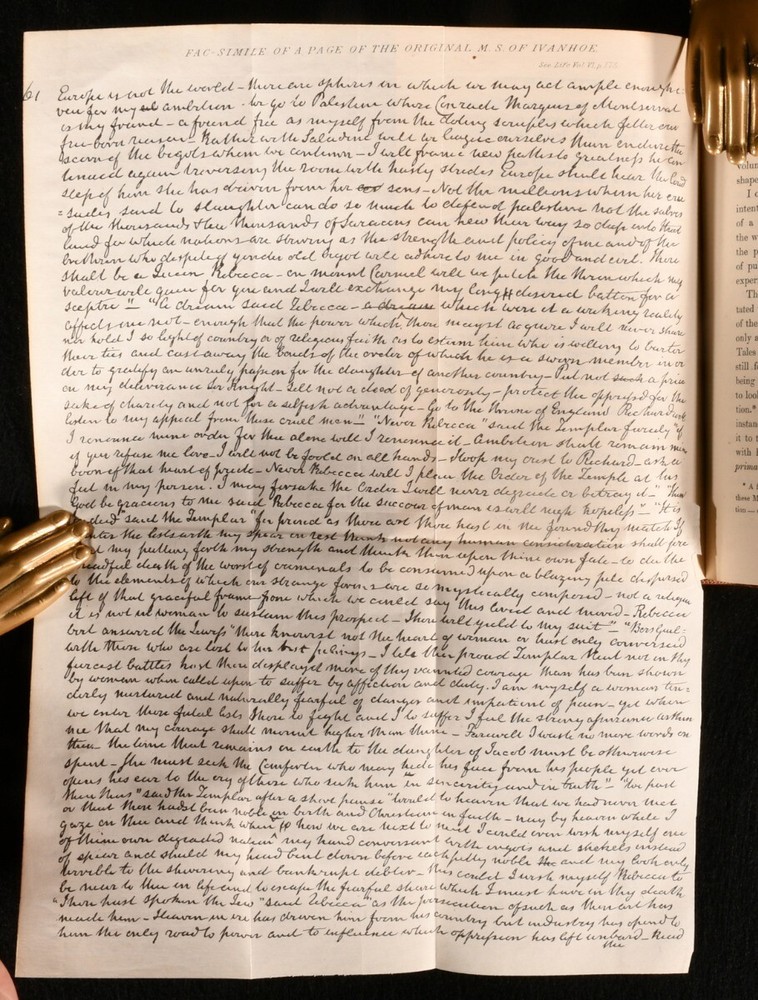 FAC-SIMILE OF A PAGE OF THE ORIGINAL M.S. OF IVANHOE.
See Life Vol. VI. p.
61
Europe is not the world – there are spheres in which we may act ample enough
even for my ambition – We go to Palestine where Conrade Marquis of Montserrat
is my friend – a friend free as myself from the doting scruples which fetter our
free-born reason – Rather with Saladine will we league ourselves than endure the
scorn of the bigots whom we contemn – I will frame new paths to greatness he con
tinued again traversing the room with hasty strides Europe shall hear the loud
step of him she has driven from her sons – Not the millions whom her cru
=sades send to slaughter can do so much to defend palestine not the sabres
of the thousands & ten thousands of Saracens can hew their way so deep into that
land for which nations are striving as the strength and policy of me and of the
brethren who despite yonder old bigot will adhere to me in good and evil. Thou
shalt be a Queen Rebecca – on mount Carmel will we pitch the throne which my
valour will gain for you and I will exchange my long desired batton for a
sceptre" – "A dream said Rebecca – a dream which were it a waking reality
affects me not – enough that the power which thou mayst acquire I will never share
nor hold I so light of country or of religious faith as to esteem him who is willing to barter
these ties and cast away the bonds of the order of which he is a sworn member in or
der to gratify an unruly passion for the daughter of another country – Put not such a price
on my deliverance Sir Knight – sell not a deed of generosity – protect the oppressed for the
sake of charity and not for a selfish advantage – Go to the throne of England Richard will
listen to my appeal from these cruel men" – "Never Rebecca" said the Templar fiercely "if
I renounce mine order for thee alone will I renounce it – Ambition shall remain mine
if you refuse me love – I will not be fooled on all hands – Stoop my crest to Richard – ask a
boon of that heart of pride – Never Rebecca will I place the Order of the Temple at his
feet in my person. I may forsake the Order I will never degrade or betray it – "Then
God be gracious to me said Rebecca for the succour of man is well nigh hopeless" – "It is
indeed" said the Templar "for proud as thou art thou hast in me found thy match If
enter the lists with my spear in rest think not any human consideration shall pre
my putting forth my strength and think then upon thine own fate – to die the
dreadful death of the worst of criminals to be consumed upon a blazing pile dispersed
to the elements of which our strange forms are so mystically composed – not a relique
left of that graceful frame from which we could say this lived and moved – Rebecca
it is not in woman to sustain this prospect – Thou wilt yield to my suit" – "Bois Guil-
bert answerd the Jewess "thou knowest not the heart of woman or hast only conversed
with those who are lost to her best feelings – I tell thee proud Templar that not in thy
fiercest battles hast thou displayed more of thy vaunted courage than has been shown
by woman when called upon to suffer by affection and duty. I am myself a woman ten
derly nurtured and naturally fearful of danger and impatient of pain – yet when
we enter those fatal lists thou to fight and I to suffer I feel the strong assurance within
me that my courage shall mount higher than thine – Farewell I waste no more words on
thee – the time that remains on earth to the daughter of Jacob must be otherwise
spent – she must seek the Comforter who may hide his face from his people yet ever
opens his ear to the cry of those who seek him in sincerity and in truth" – "We part
then thus" said the Templar after a short pause "would to heaven that we had never met
or that thou hadst been noble in birth and Christian in faith – nay by heaven while I
gaze on thee and think when & how we are next to meet I could even wish myself one
of thine own degraded nation my hand conversant with ingots and shekels instead
of spear and shield my head bent down before each petty noble and my look only
terrible to the shivering and bankrupt debtor – this could I wish myself Rebecca to
be near to thee in life and to escape the fearful share which I must have in thy death
"Thou hast spoken the Jew" said Rebecca "as the persecution of such as thou art has
made him – Heaven in ire has driven him from his country but industry has opend to
him the only road to power and to influence which oppression has left unbard – Read
the
volum
shape
I c
intent
of a
the w
the p
of pu
exper
Th
tated
of the
only a
Tales
still f
being
to loo
tion.*
instan
it to t
with l
prima
* A
these M
tion —